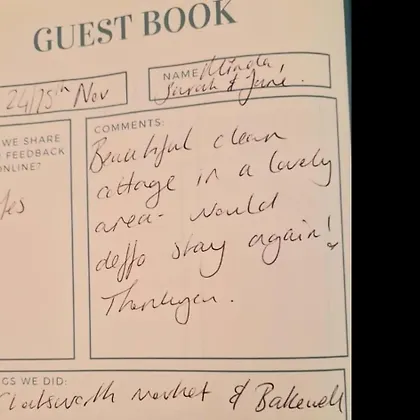 GUEST BOOK
24/25th Nov
NAME: Minda,
Sarah & June.
WE SHARE
FEEDBACK
ONLINE?
Yes
COMMENTS:
Beautiful clean
cottage in a lovely
area - would
deffo stay again!
Thankyou.
GS WE DID:
Chatsworth market & Bakewell